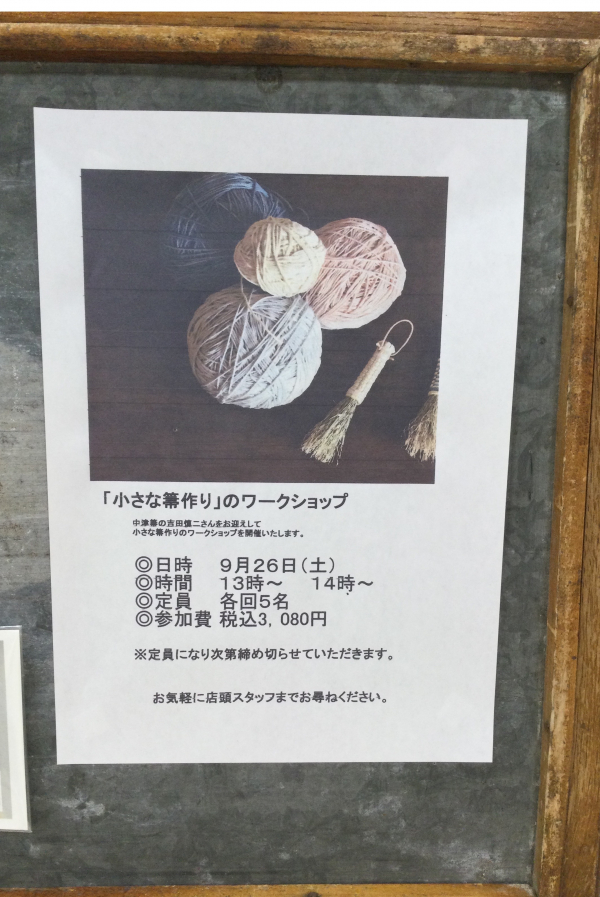 「小さな箒作り」のワークショップ
中津箒の吉田慎二さんをお迎えして
小さな箒作りのワークショップを開催いたします。
◎日時 9月26日(土)
◎時間 13時～ 14時～
◎定員 各回5名
◎参加費 税込3,080円
※定員になり次第締め切らせていただきます。
お気軽に店頭スタッフまでお尋ねください。